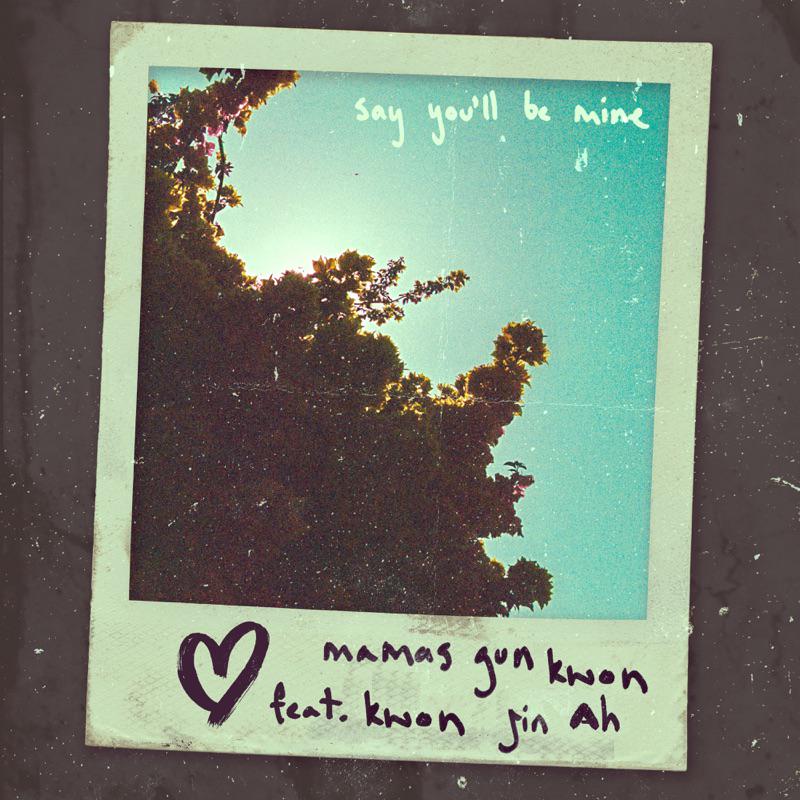 say you'll be mine
mamas gun kwon
feat. kwon jin Ah